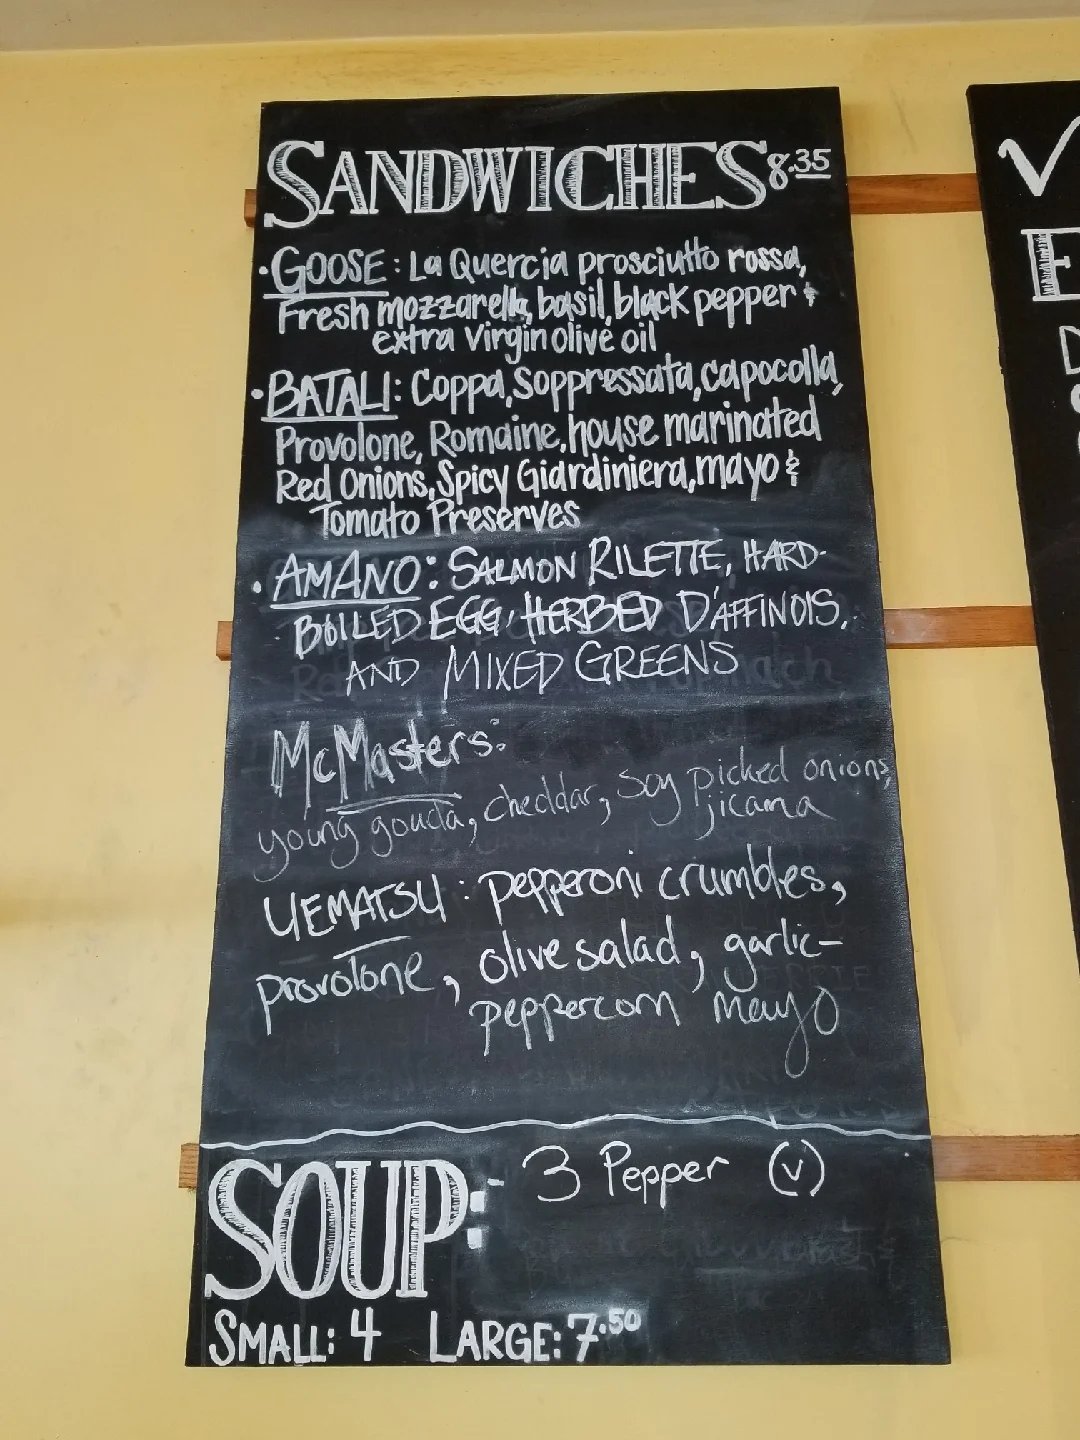 SANDWICHES 8.35
• GOOSE: La Quercia prosciutto rossa,
Fresh mozzarella, basil, black pepper &
extra virgin olive oil
• BATALI: Coppa, Soppressata, capocolla,
Provolone, Romaine, house marinated
Red Onions, Spicy Giardiniera, mayo &
Tomato Preserves
• AMANO: SALMON RILETTE, HARD-
BOILED EGG, HERBED D'AFFINOIS,
AND MIXED GREENS
McMasters:
young gouda, cheddar, soy picked onions,
jicama
UEMATSU: pepperoni crumbles,
provolone, olive salad, garlic-
peppercorn mayo
SOUP: 3 Pepper (v)
SMALL: 4 LARGE: 7.50